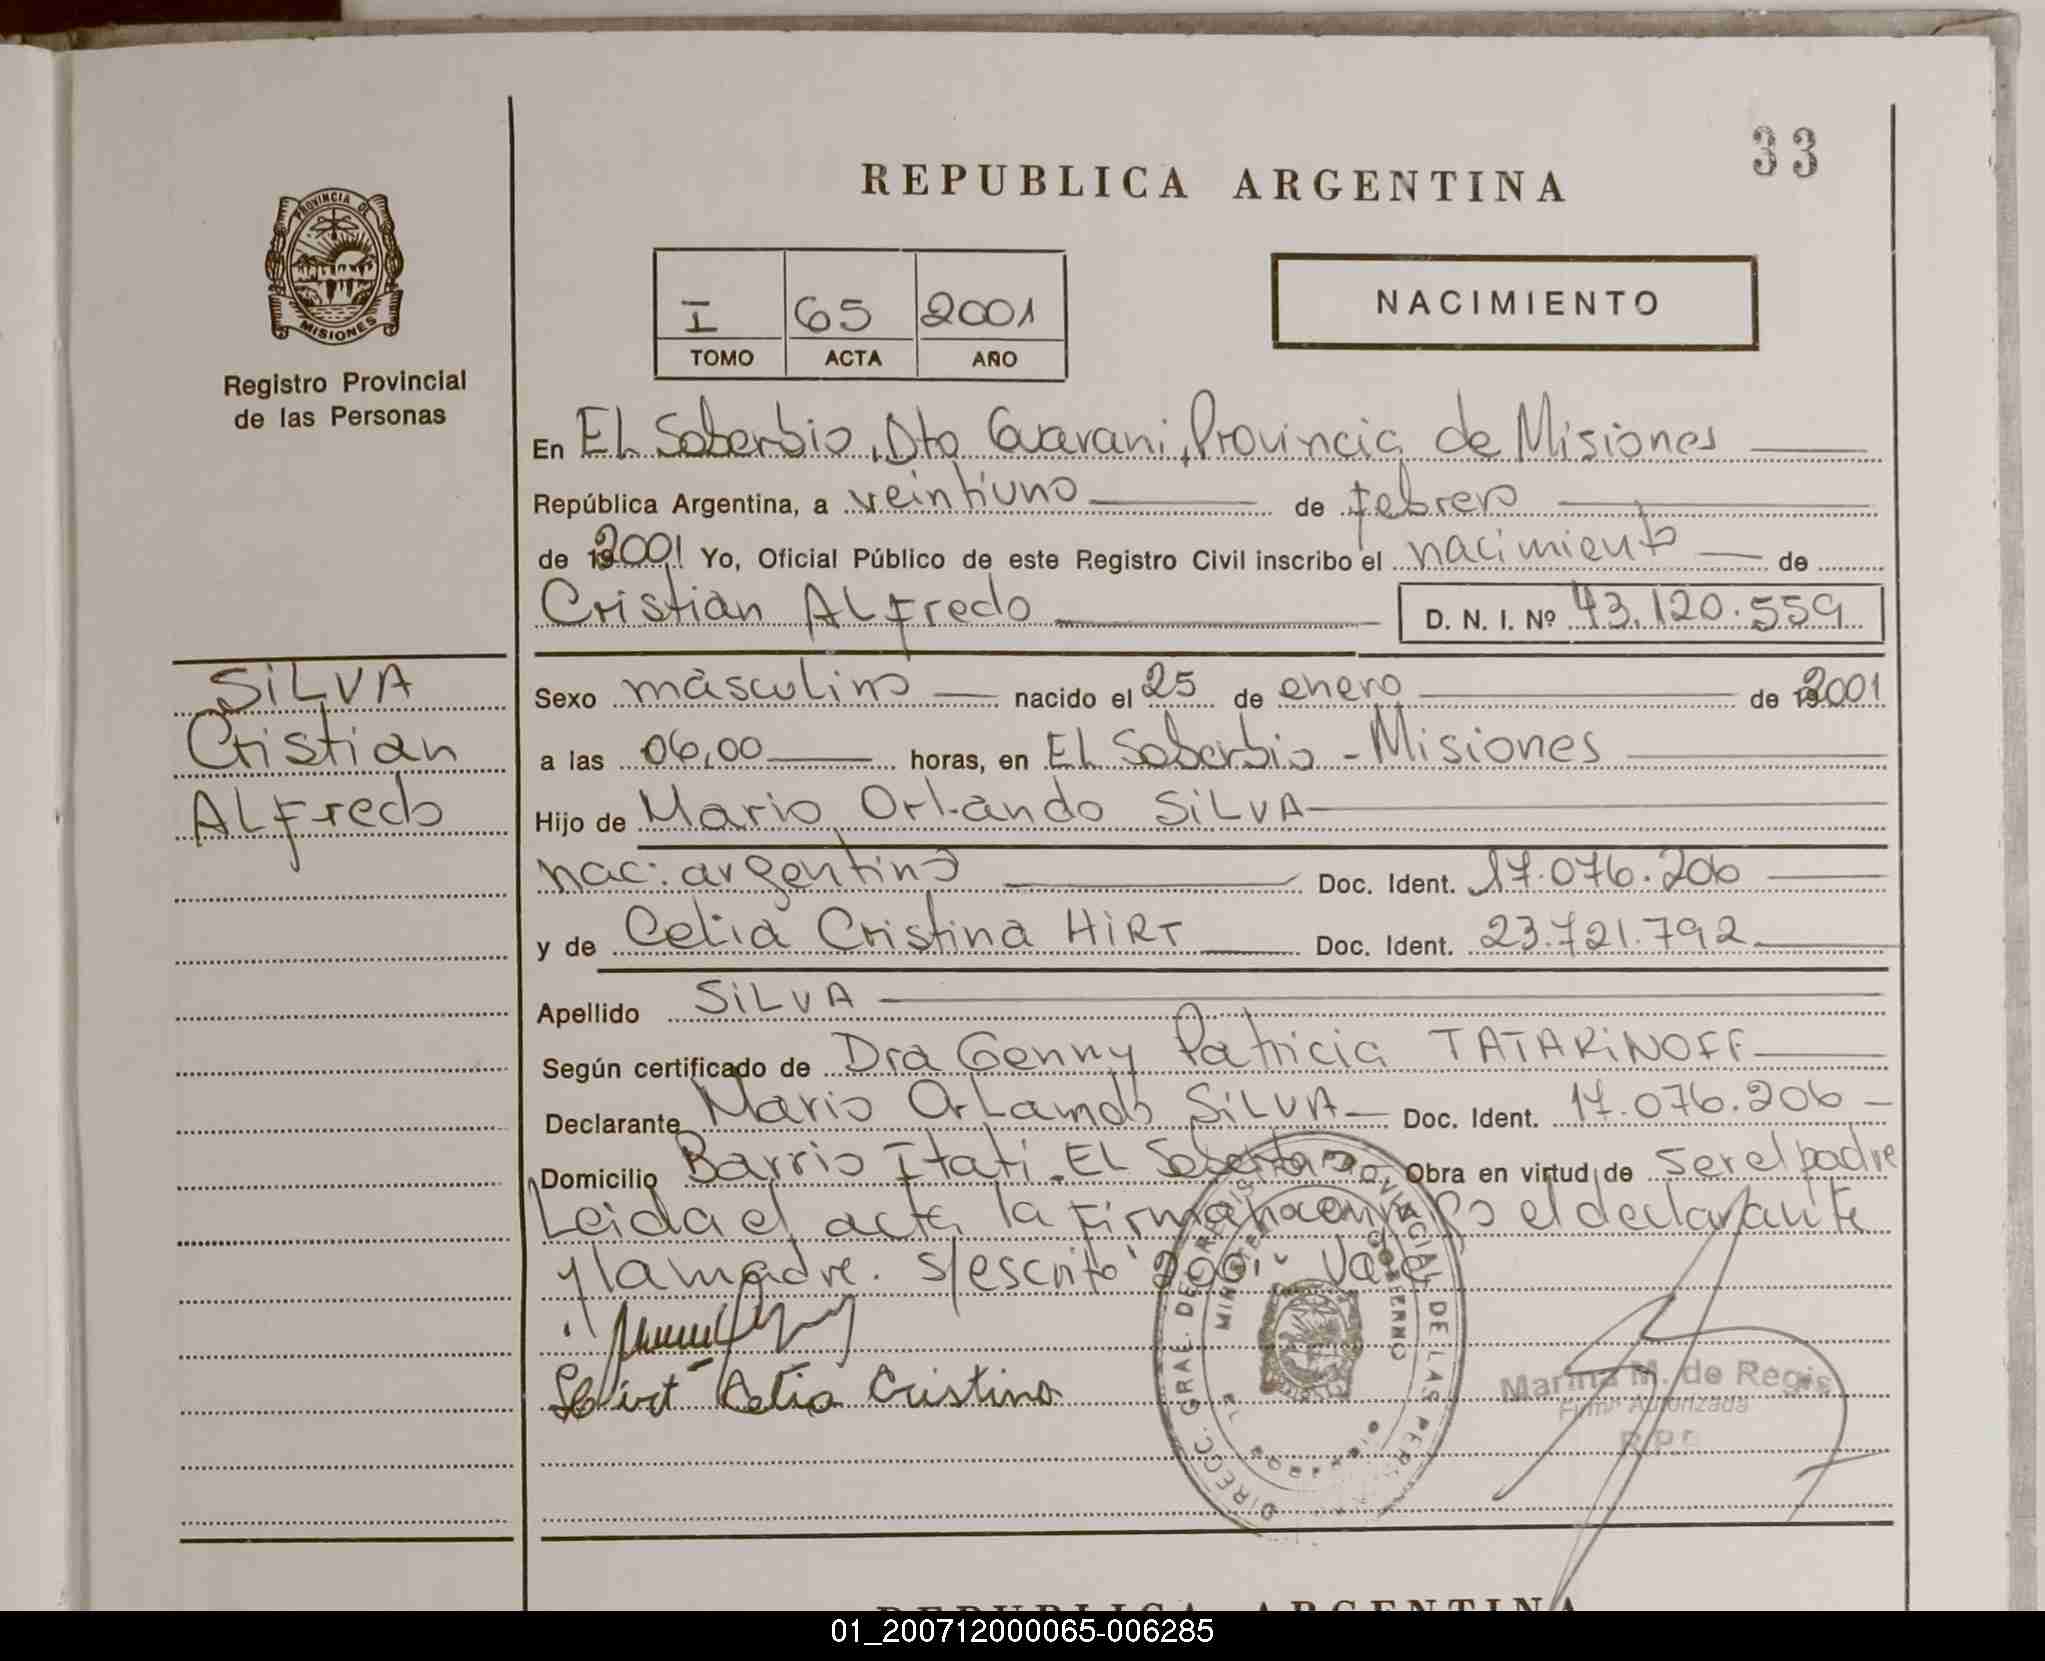 33
REPUBLICA ARGENTINA
PROVINCIA DE
MISIONES
Registro Provincial
de las Personas
I 65 2001
TOMO ACTA AÑO
NACIMIENTO
En El Soberbio, Dto Guarani, Provincia de Misiones
República Argentina, a veintiuno de febrero
de 2001 Yo, Oficial Público de este Registro Civil inscribo el nacimiento de
Cristian Alfredo D. N. I. Nº 43.120.559
SILVA
Cristian
Alfredo
Sexo masculino nacido el 25 de enero de 2001
a las 06,00 horas, en El Soberbio - Misiones
Hijo de Mario Orlando SILVA
nac: argentino Doc. Ident. 17.076.206
y de Celia Cristina HIRT Doc. Ident. 23.721.792
Apellido SILVA
Según certificado de Dra Genny Patricia TATARINOFF
Declarante Mario Orlando SILVA Doc. Ident. 17.076.206
Domicilio Barrio Itati. El Soberbio Obra en virtud de ser el padre
Leida el acta la firman el declarante
y la madre. s/escrito "2001" Vale
Hirt Celia Cristina
DIRECC. GRAL. DE REGISTRO PROVINCIAL DE LAS PERSONAS
MINISTERIO GOBIERNO
Marina M. de Regis
Firma Autorizada
REPUBLICA ARGENTINA
01_200712000065-006285